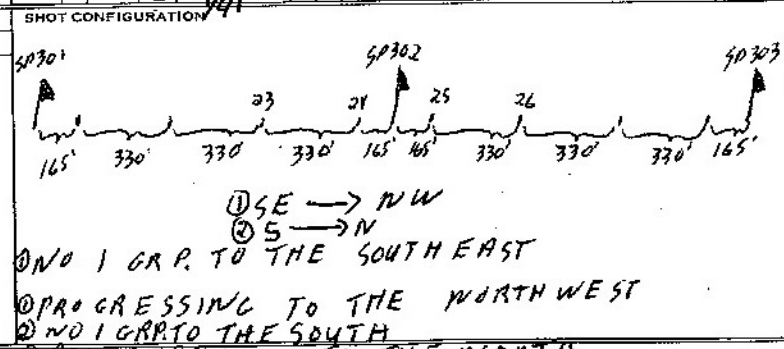 SHOT CONFIGURATION
SP301 SP302 SP303
23 24 25 26
165' 330' 330' 330' 165' 165' 330' 330' 330' 165'
① SE → NW
② S → N
① NO 1 GRP. TO THE SOUTHEAST
① PROGRESSING TO THE NORTHWEST
② NO 1 GRP. TO THE SOUTH